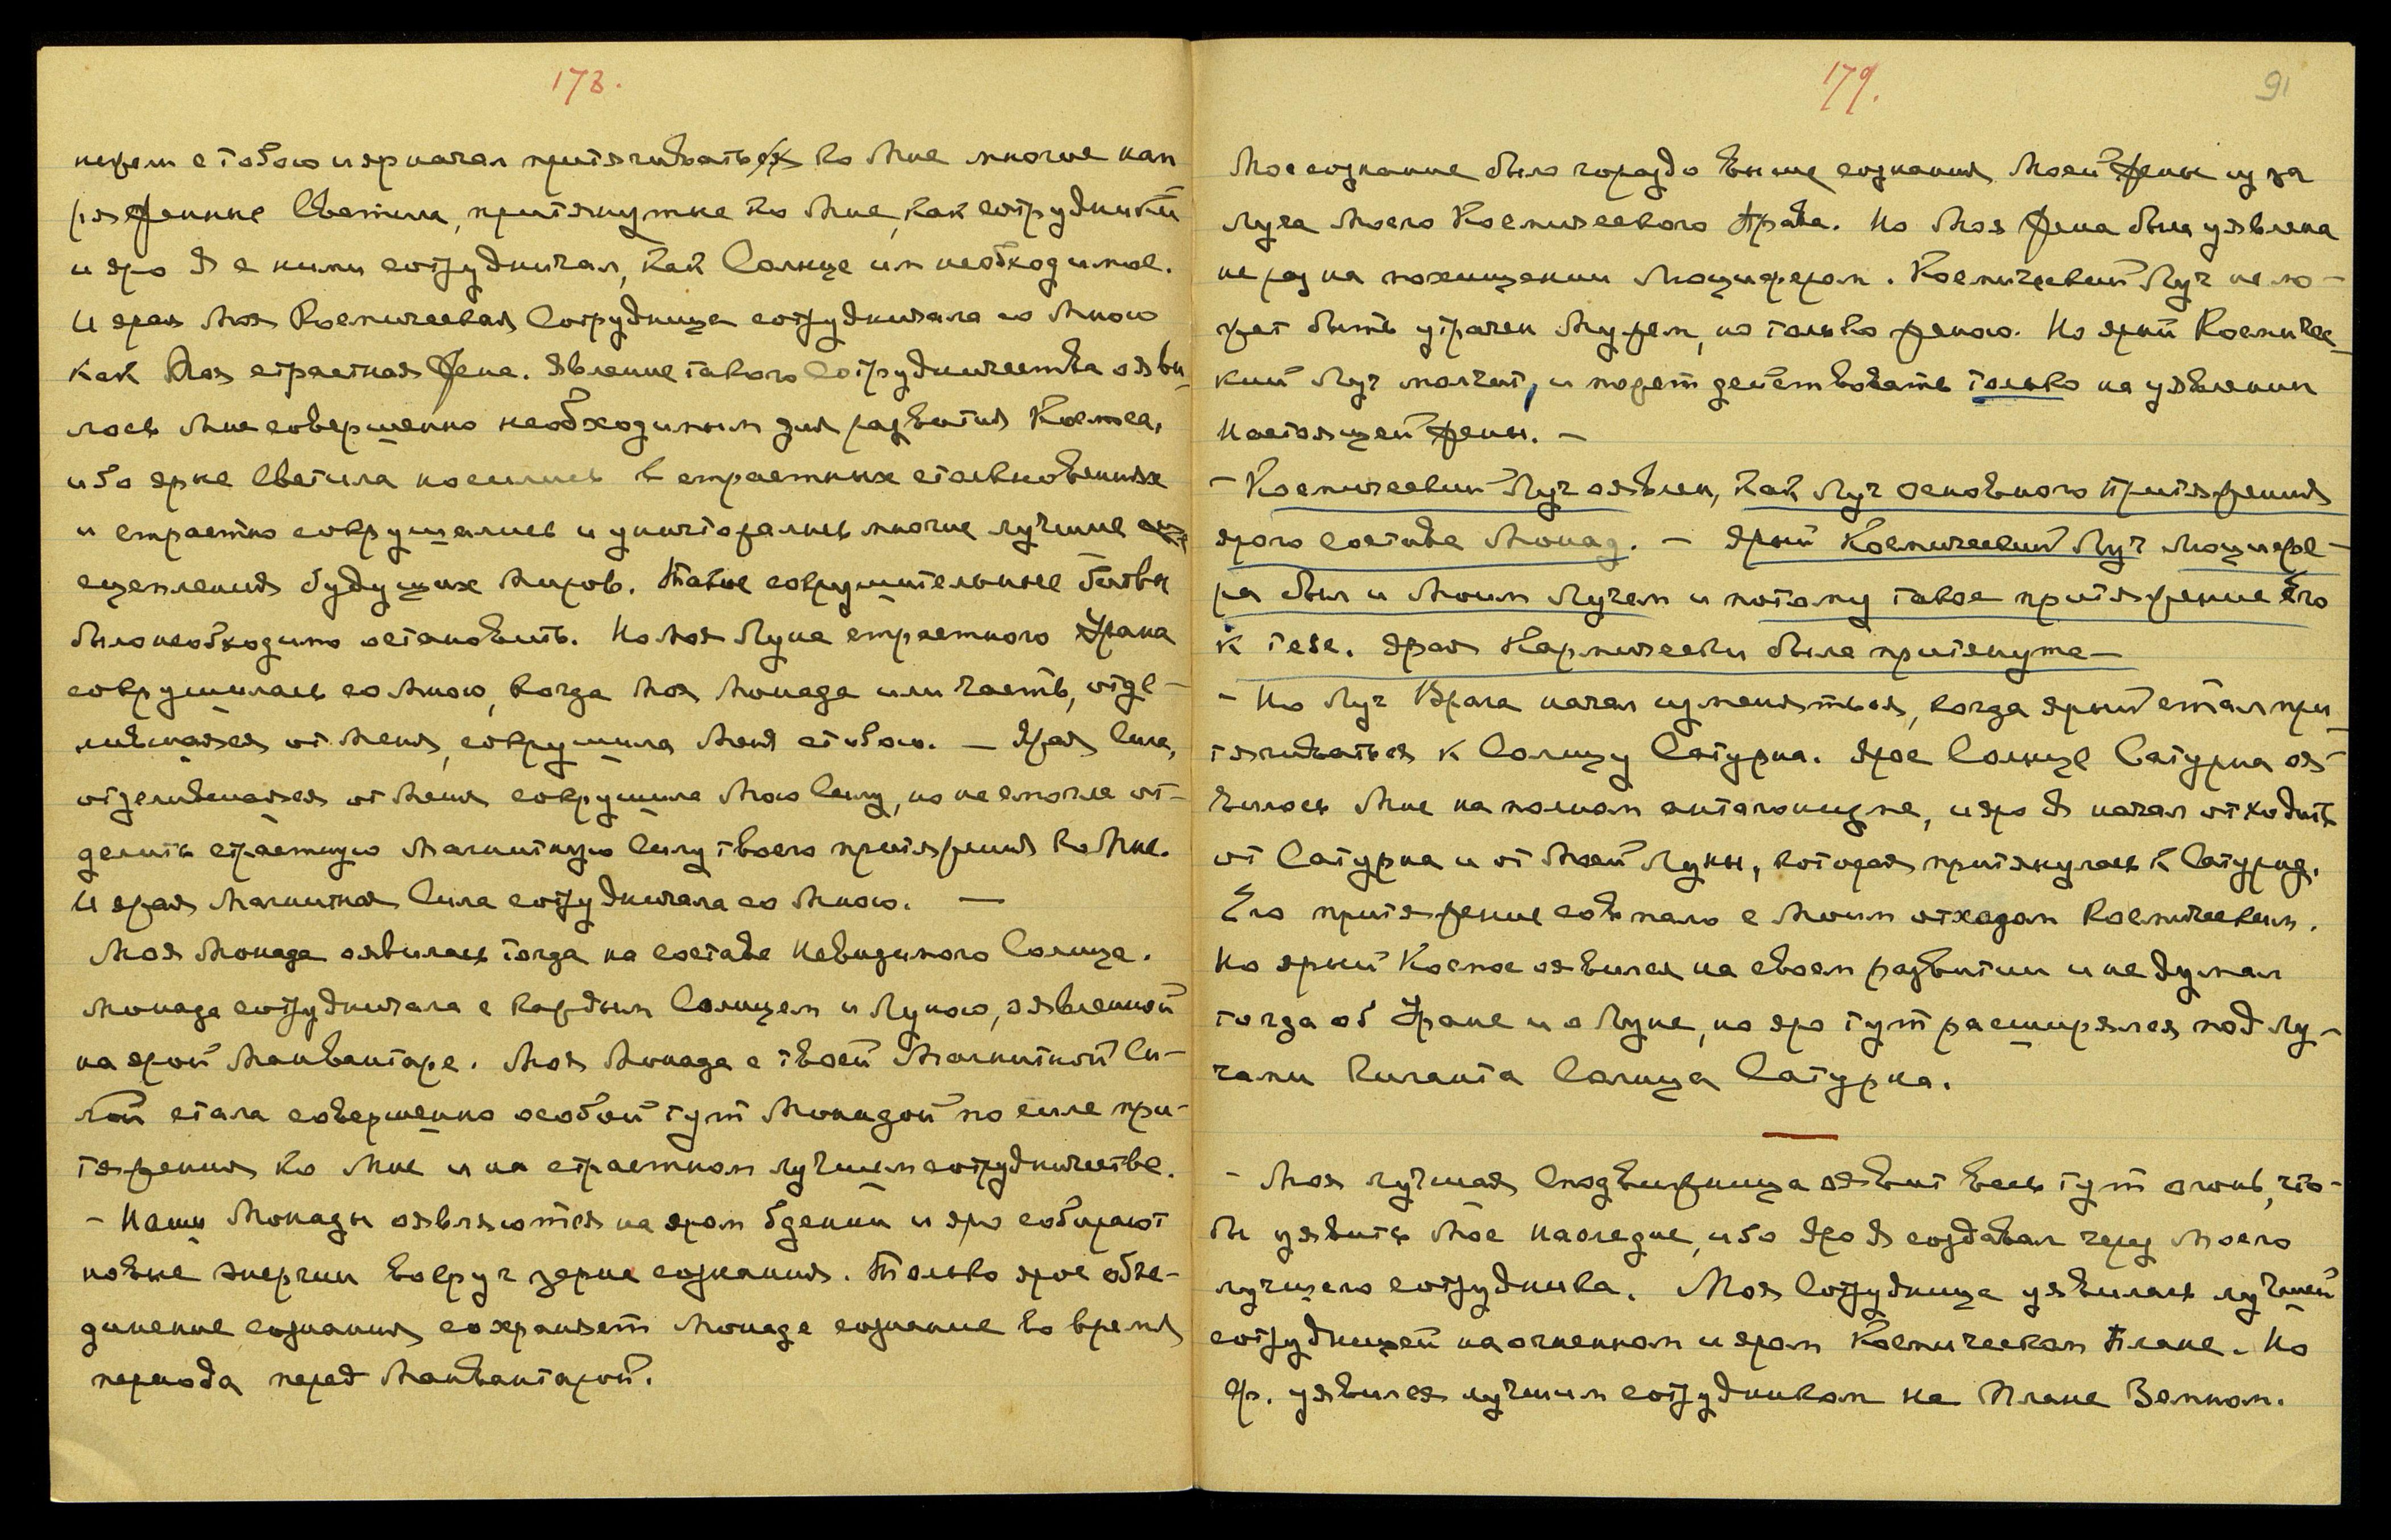 178.
нужен с тобою и яр начал притягивать ко Мне многие нап
ряженные Светила, притянутые ко Мне, как сотрудники
и яро Я с ними сотрудничал, как Солнце им необходимое.
И ярая Моя Космическая Сотрудница сотрудничала со Мною
как Моя страстная Жена. Явление такого Сотрудничества ояви-
лось Мне совершенно необходимым для развития Космоса,
ибо ярые Светила носились в страстных столкновениях
и страстно сокрушались и уничтожались многие лучшие
сцепления будущих Миров. Такие сокрушительные битвы
было необходимо остановить. Но моя Луна страстного Урана
сокрушилась со Мною, когда Моя Монада или часть, отде-
лившаяся от Меня, сокрушила Меня с тобою. — Ярая Сила,
отделившаяся от Меня сокрушила Мою Силу, но не смогла от-
делить страстную Магнитную Силу твоего притяжения ко Мне.
И ярая Магнитная Сила сотрудничала со Мною. —
Моя Монада оявилась тогда на составе Невидимого Солнца.
Монада сотрудничала с каждым Солнцем и Луною, оявленной
на ярой Манвантаре. Моя Монада с твоей Магнитной Си-
лой стала совершенно особой тут Монадой по силе при-
тяжения ко Мне и на страстном лучшем сотрудничестве.
- Наши Монады оявляются на яром бдении и яро собирают
новые энергии вокруг зерна сознания. Только ярое объе-
динение сознания сохраняет Монаде сознание во время
периода перед Манвантарой.
179.
91
Мое сознание было гораздо выше сознания Моей Жены из за
Луча Моего Космического Права. Но Моя Жена была уявлена
не раз на похищении Люцифером. Космический Луч не мо-
жет быть утрачен Мужем, но только женою. Но ярый Космичес-
кий Луч молчит, и может действовать только на уявлении
Настоящей Жены. —
- Космический Луч оявлен, как Луч основного притяжения
ярого состава Монад. — Ярый Космический Луч Люцифе-
ра был и Моим Лучем и потому такое притяжение Его
к тебе. Ярая Кармически была притянута —
- Но Луч Врага начал изменяться, когда ярый стал при-
тягиваться к Солнцу Сатурна. Ярое Солнце Сатурна оя-
вилось Мне на полном антагонизме, и яро Я начал отходить
от Сатурна и от Моей Луны, которая притянулась к Сатурну.
Его притяжение совпало с Моим отходом Космическим.
Но ярый Космос оявился на своем развитии и не думал
тогда об Уране и о Луне, но яро тут расширялся под Лу-
чами Гиганта Солнца Сатурна.
- Моя лучшая Сподвижница оявит весь тут огонь, что-
бы уявить Мое наследие, ибо яро Я создавал через Моего
лучшего сотрудника. Моя Сотрудница уявилась лучшей
сотрудницей на огненном и яром Космическом Плане. Но
Ф. уявился лучшим сотрудником на Плане Земном.